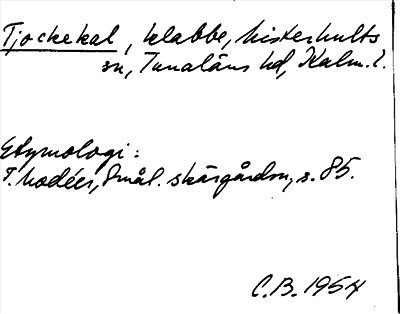 Tjockekal, klabbe, Misterhults
sn, Tunaläns hd, Kalm. l.
Etymologi:
T. Modéer, Smål. skärgårdsn, s. 85.
C.B. 1954